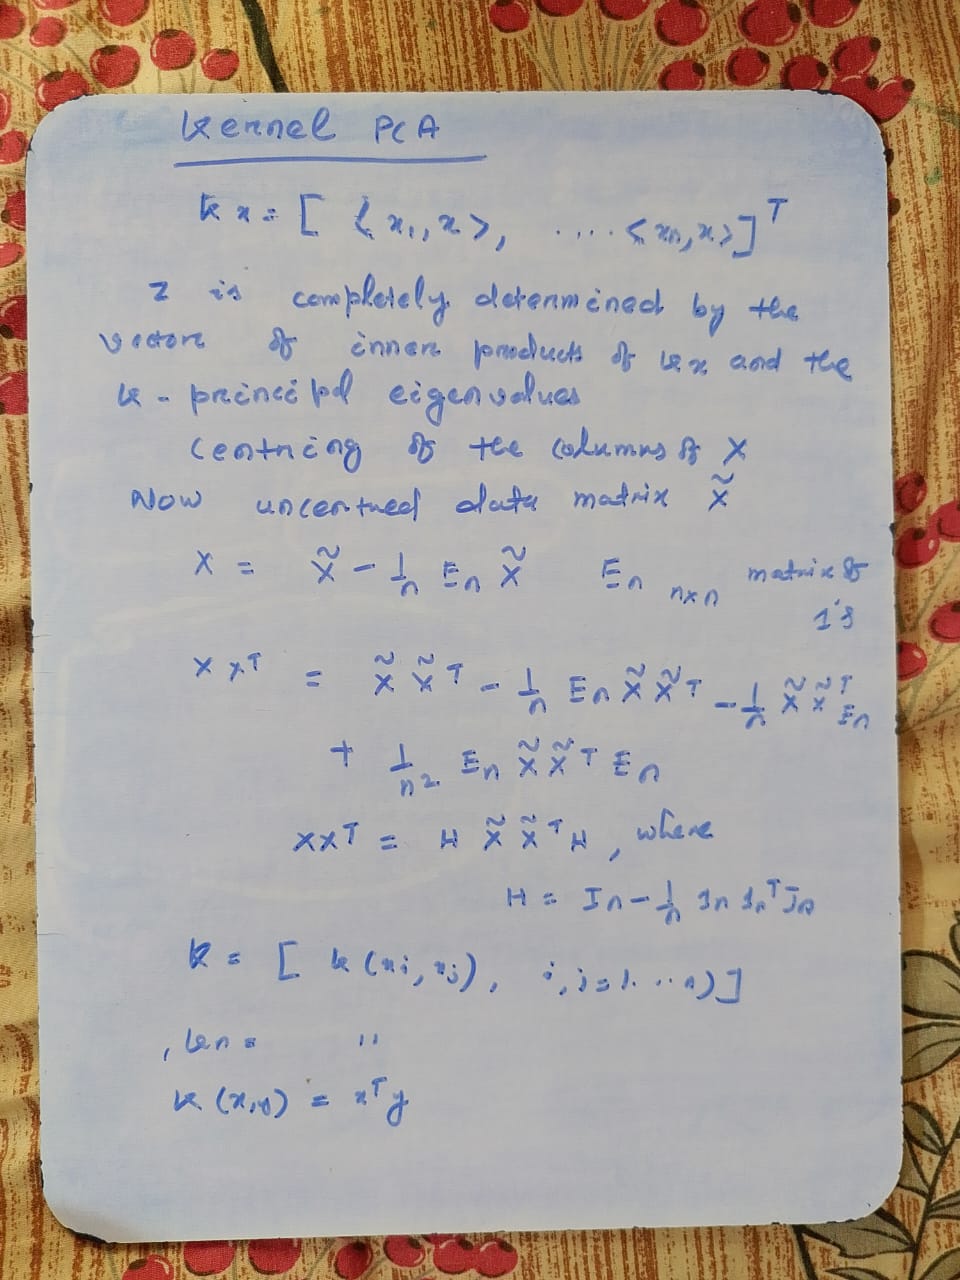 Kernel PCA
k x = [ <x₁, x>, ....<xn, x>]ᵀ
Z is completely determined by the
vectors of inner products of kx and the
k - principal eigenvalues
Centring of the columns of X
Now uncentred data matrix X̃
X = X̃ - 1/n En X̃ En n×n matrix of
1's
X Xᵀ = X̃ X̃ᵀ - 1/n En X̃ X̃ᵀ - 1/n X̃ X̃ᵀ En
+ 1/n² En X̃ X̃ᵀ En
XXᵀ = H X̃ X̃ᵀ H, where
H = In - 1/n 1n 1nᵀ Jn
K = [ k (xi, xj), i, j = 1. .. n)]
, kn = "
k (x,y) = xᵀy